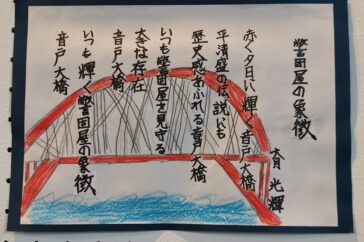 警固屋の象徴
斉 光輝
赤く夕日に輝く音戸大橋
平清盛の伝説いも
歴史感あふれる音戸大橋
いつも警固屋を見守る
大きな存在
音戸大橋
いつも輝く警固屋の象徴
音戸大橋